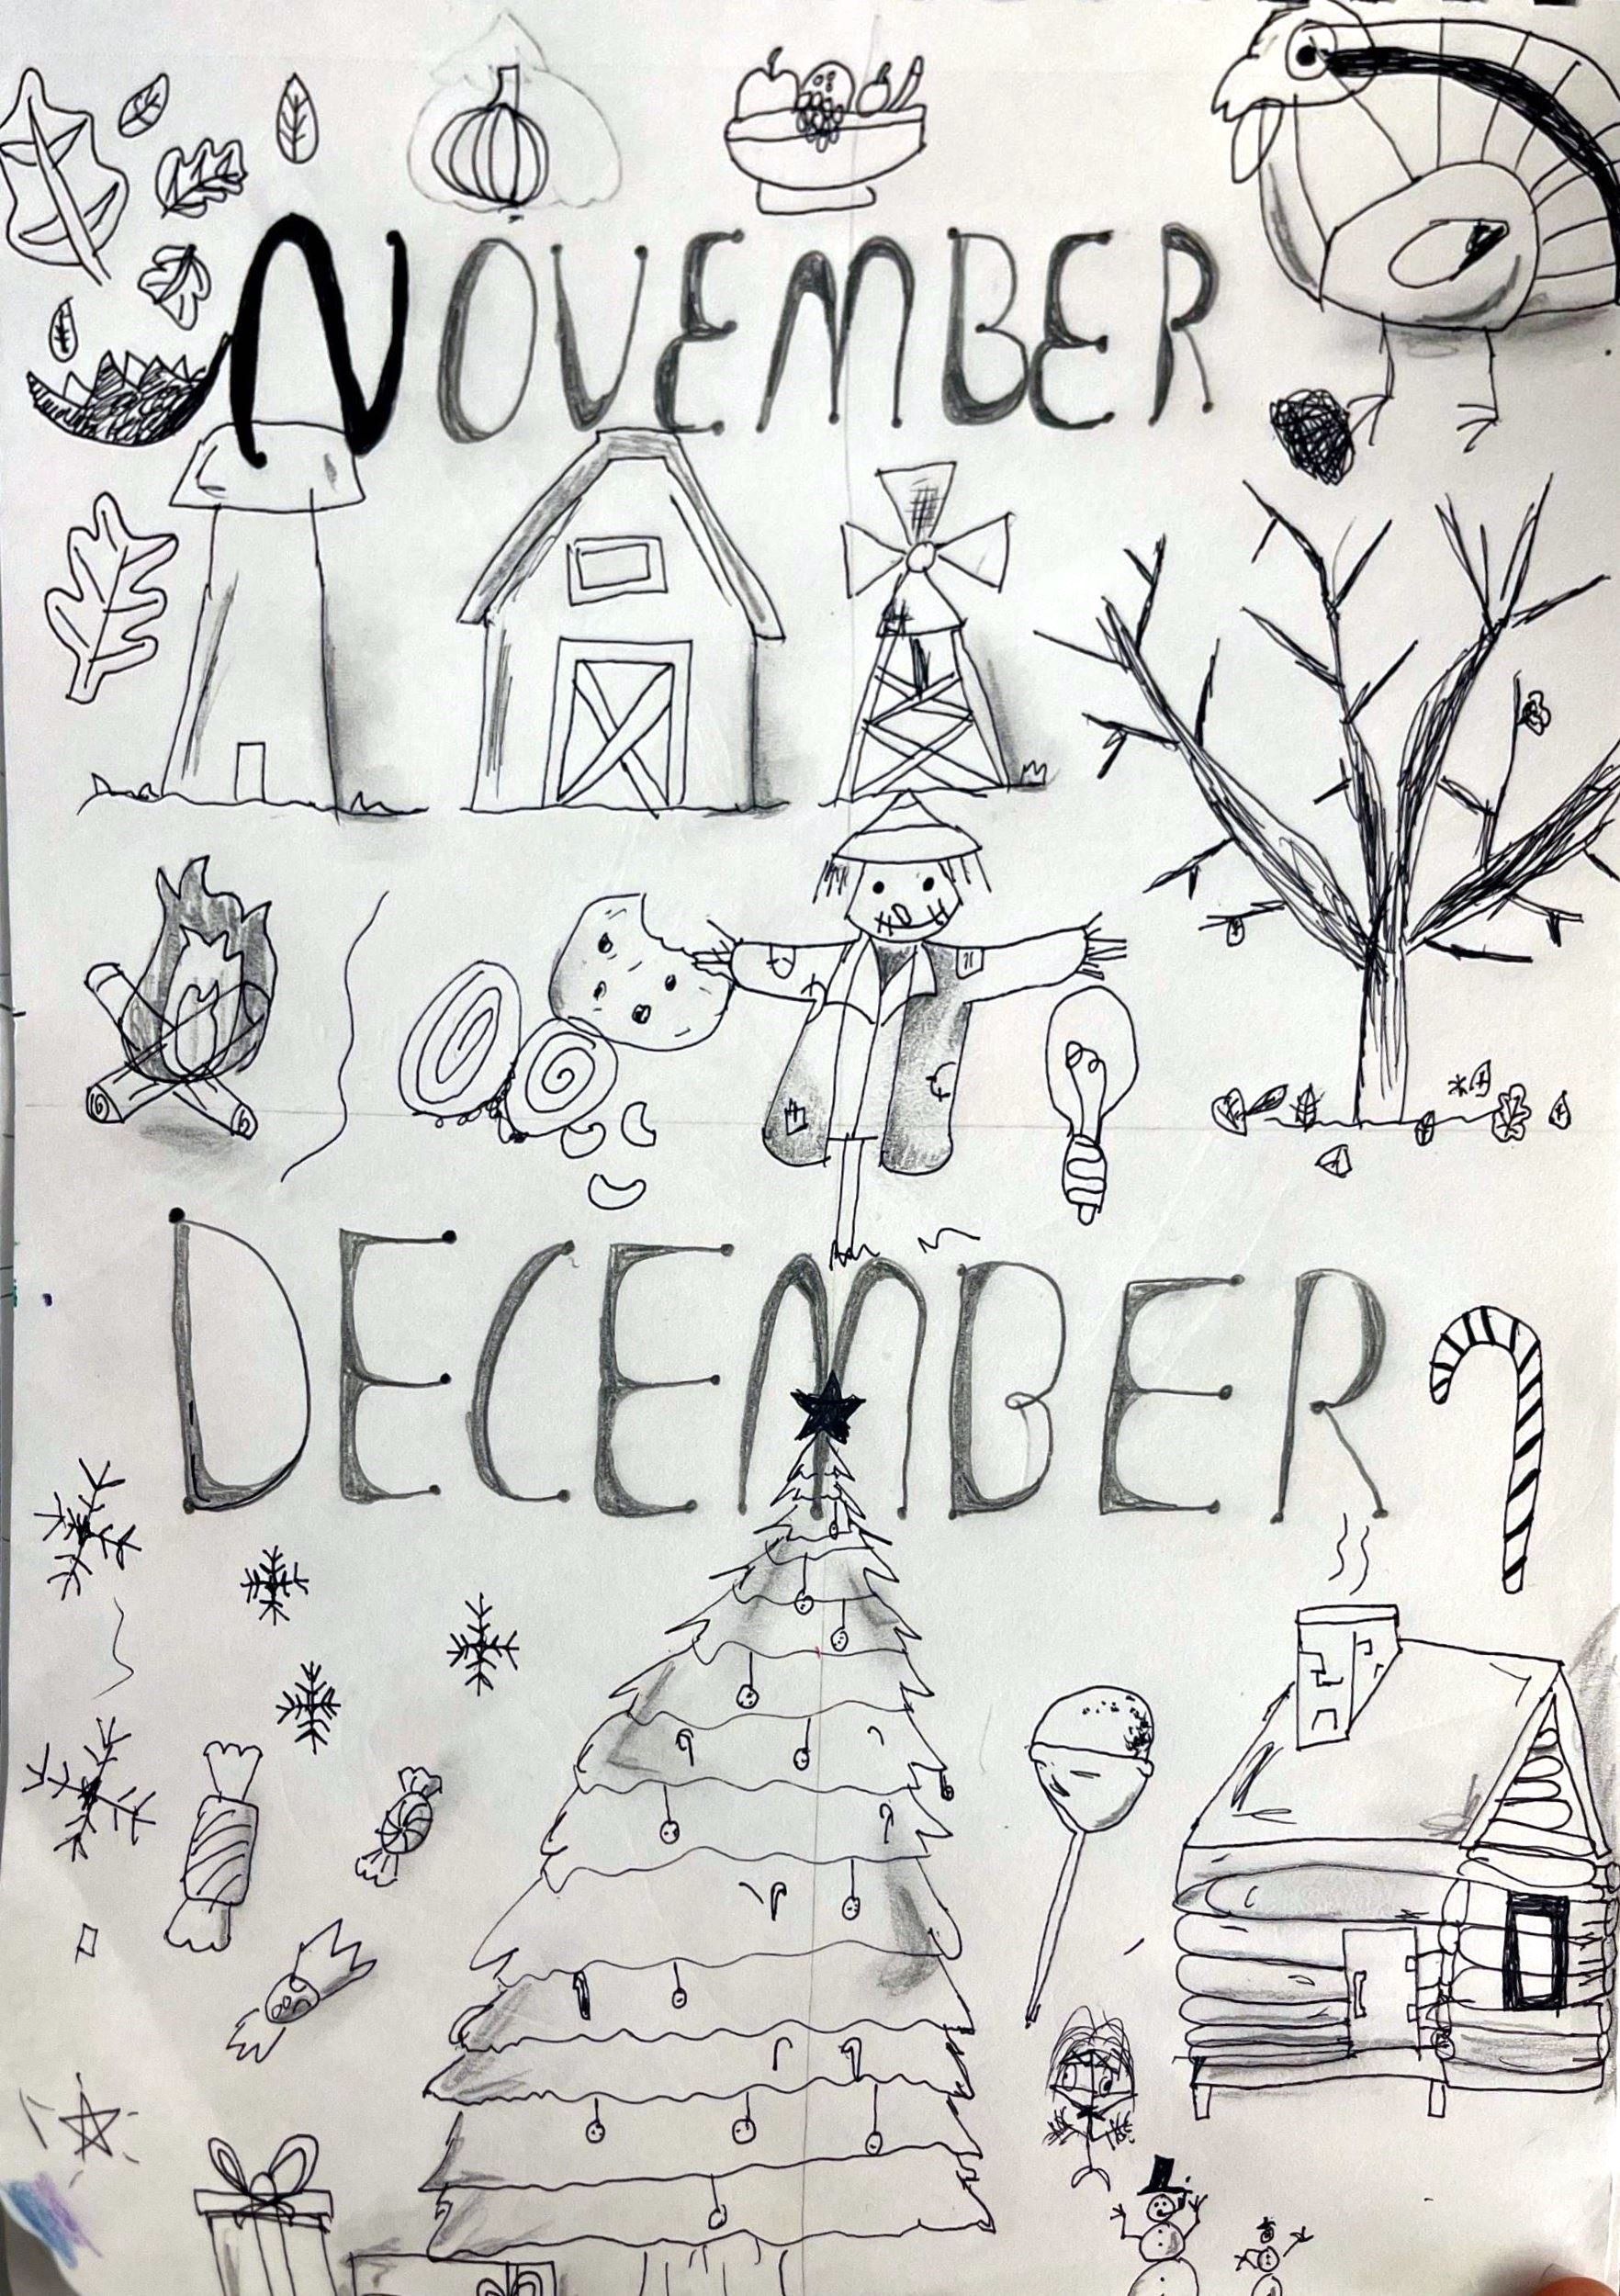 NOVEMBER
DECEMBER